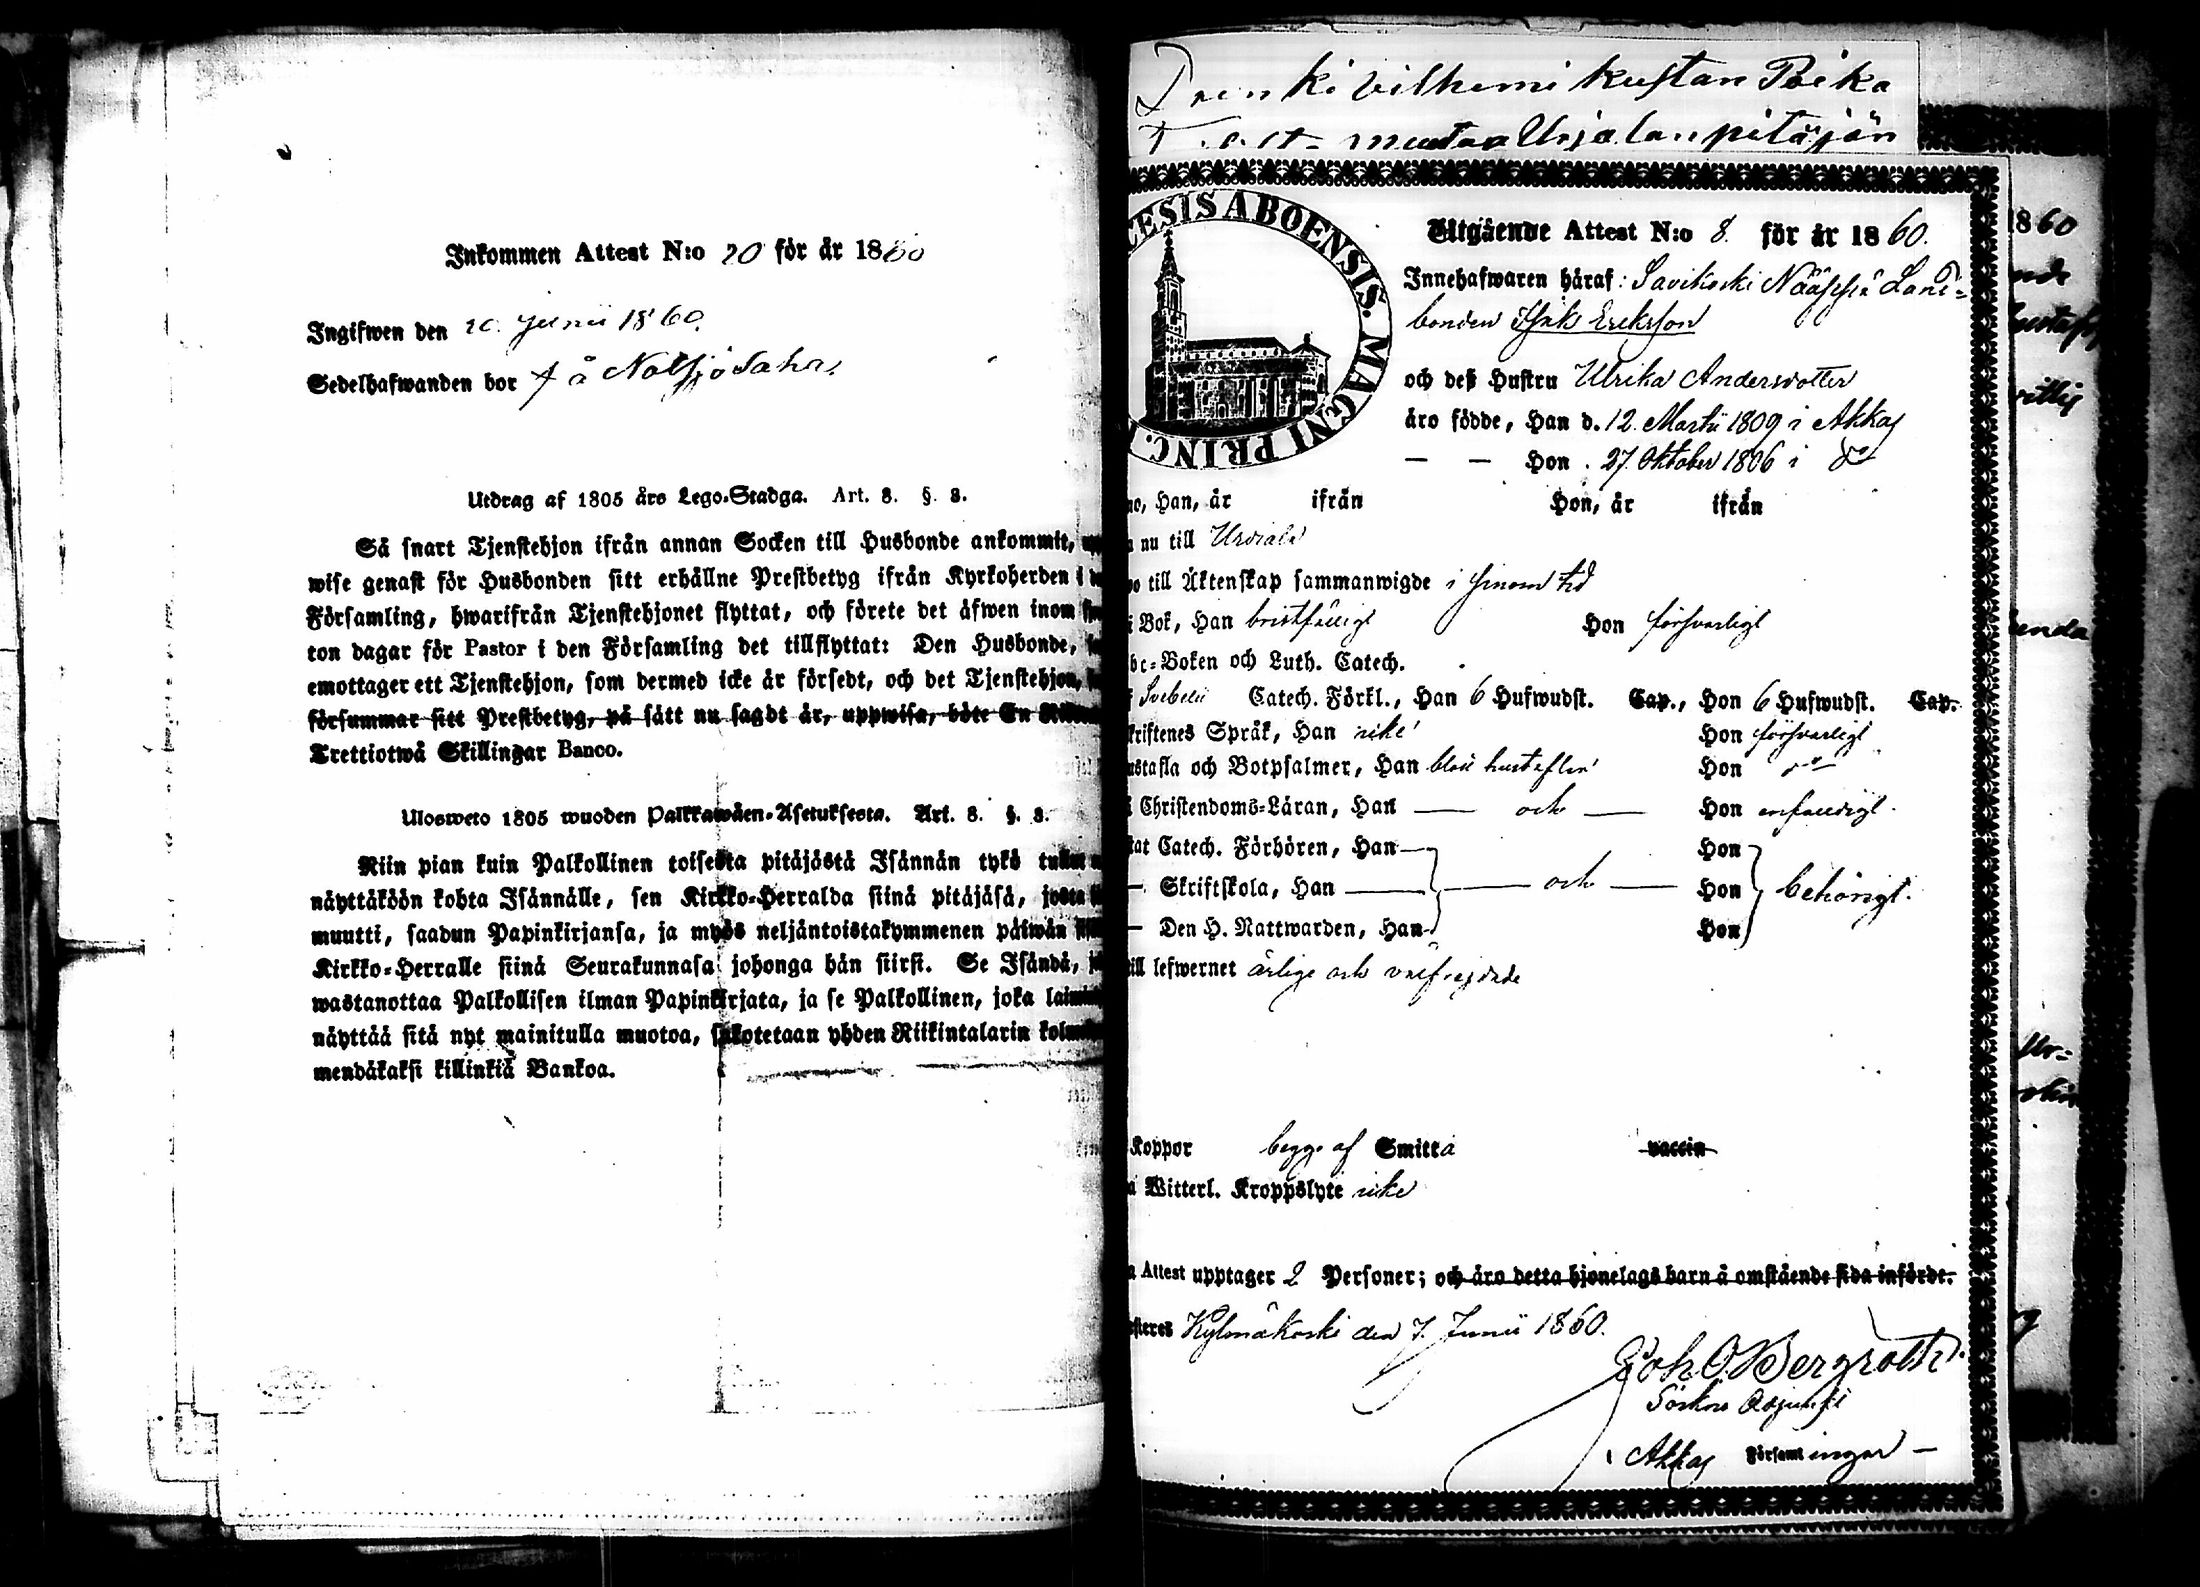 Inkommen Attest N:o 20 för år 1860
Ingifwen den 20. Junii 1860.
Sedelhafwanden bor på Notsjö Saha,
Utdrag af 1805 års Lego-Stadga. Art. 8. §. 8.
Så snart Tjenstehjon ifrån annan Socken till Husbonde ankommit,
wise genast för Husbonden sitt erhållne Prestbetyg ifrån Kyrkoherden i
Församling, hwarifrån Tjenstehjonet flyttat, och förete det äfwen inom
ton dagar för Pastor i den Församling det tillflyttat: Den Husbonde,
emottager ett Tjenstehjon, som dermed icke är försedt, och det Tjenstehjon,
försummar sitt Prestbetyg, på sätt nu sagdt är, uppwisa, böte En
Trettiotwå Skillingar Banco.
Ulosweto 1805 wuoden Palkkawäen-Asetuksesta. Art. 8. §. 8.
Niin pian kuin Palkollinen toisesta pitäjästä Isännän tykö
näyttäköön kohta Isännälle, sen Kirkko-Herralda siinä pitäjäsä, josta
muutti, saadun Papinkirjansa, ja myös neljäntoistakymmenen päiwän
Kirkko-Herralle siinä Seurakunnasa johonga hän siirsi. Se Isändä,
wastanottaa Palkollisen ilman Papinkirjata, ja se Palkollinen, joka
näyttää sitä nyt mainitulla muotoa, sakotetaan yhden Riikintalarin
mendäkaksi killinkiä Bankoa.
Renki vilhemi kustan Poika
muutaa Urjalan pitäjän
CESIS ABOENSIS. MAGNI PRINC.
Utgående Attest N:o 8. för år 1860.
Innehafwaren häraf: Savikoski Nääppä Land-
bonden Isak Eriksson
och deß Hustru Ulrika Andersdotter
äro födde, Han d. 12. Martii 1809 i Akkas
— — Hon . 27. Oktober 1806 i do
no, Han, år ifrån Hon, år ifrån
nu till Urdiala
till Äktenskap sammanwigde i sinom tid
i Bok, Han bristfälligt Hon försvarligt
bc-Boken och Luth. Catech.
Svebelii Catech. Förkl., Han 6 Hufwudst. Cap., Hon 6 Hufwudst. Cap.
kriftenes Språk, Han icke Hon försvarligt
ustafla och Botpsalmer, Han blott hustaflan Hon do
Christendoms-Läran, Han — och — Hon enfaldigt.
tat Catech. Förhören, Han Hon
— Skriftskola, Han — och — Hon behörigt.
— Den H. Nattwarden, Han Hon
till lefwernet ärlige och välfrejdade
Koppor begge af Smitta vaccin
Witterl. Kroppslyte icke
Attest upptager 2 Personer; och äro detta hjonelags barn å omstående sida införde.
steres Kylmäkoski den 7. Junii 1860.
Joh. O. Bergroth.
Sockne Adjunkt
i Akkas Församlingar —
1860